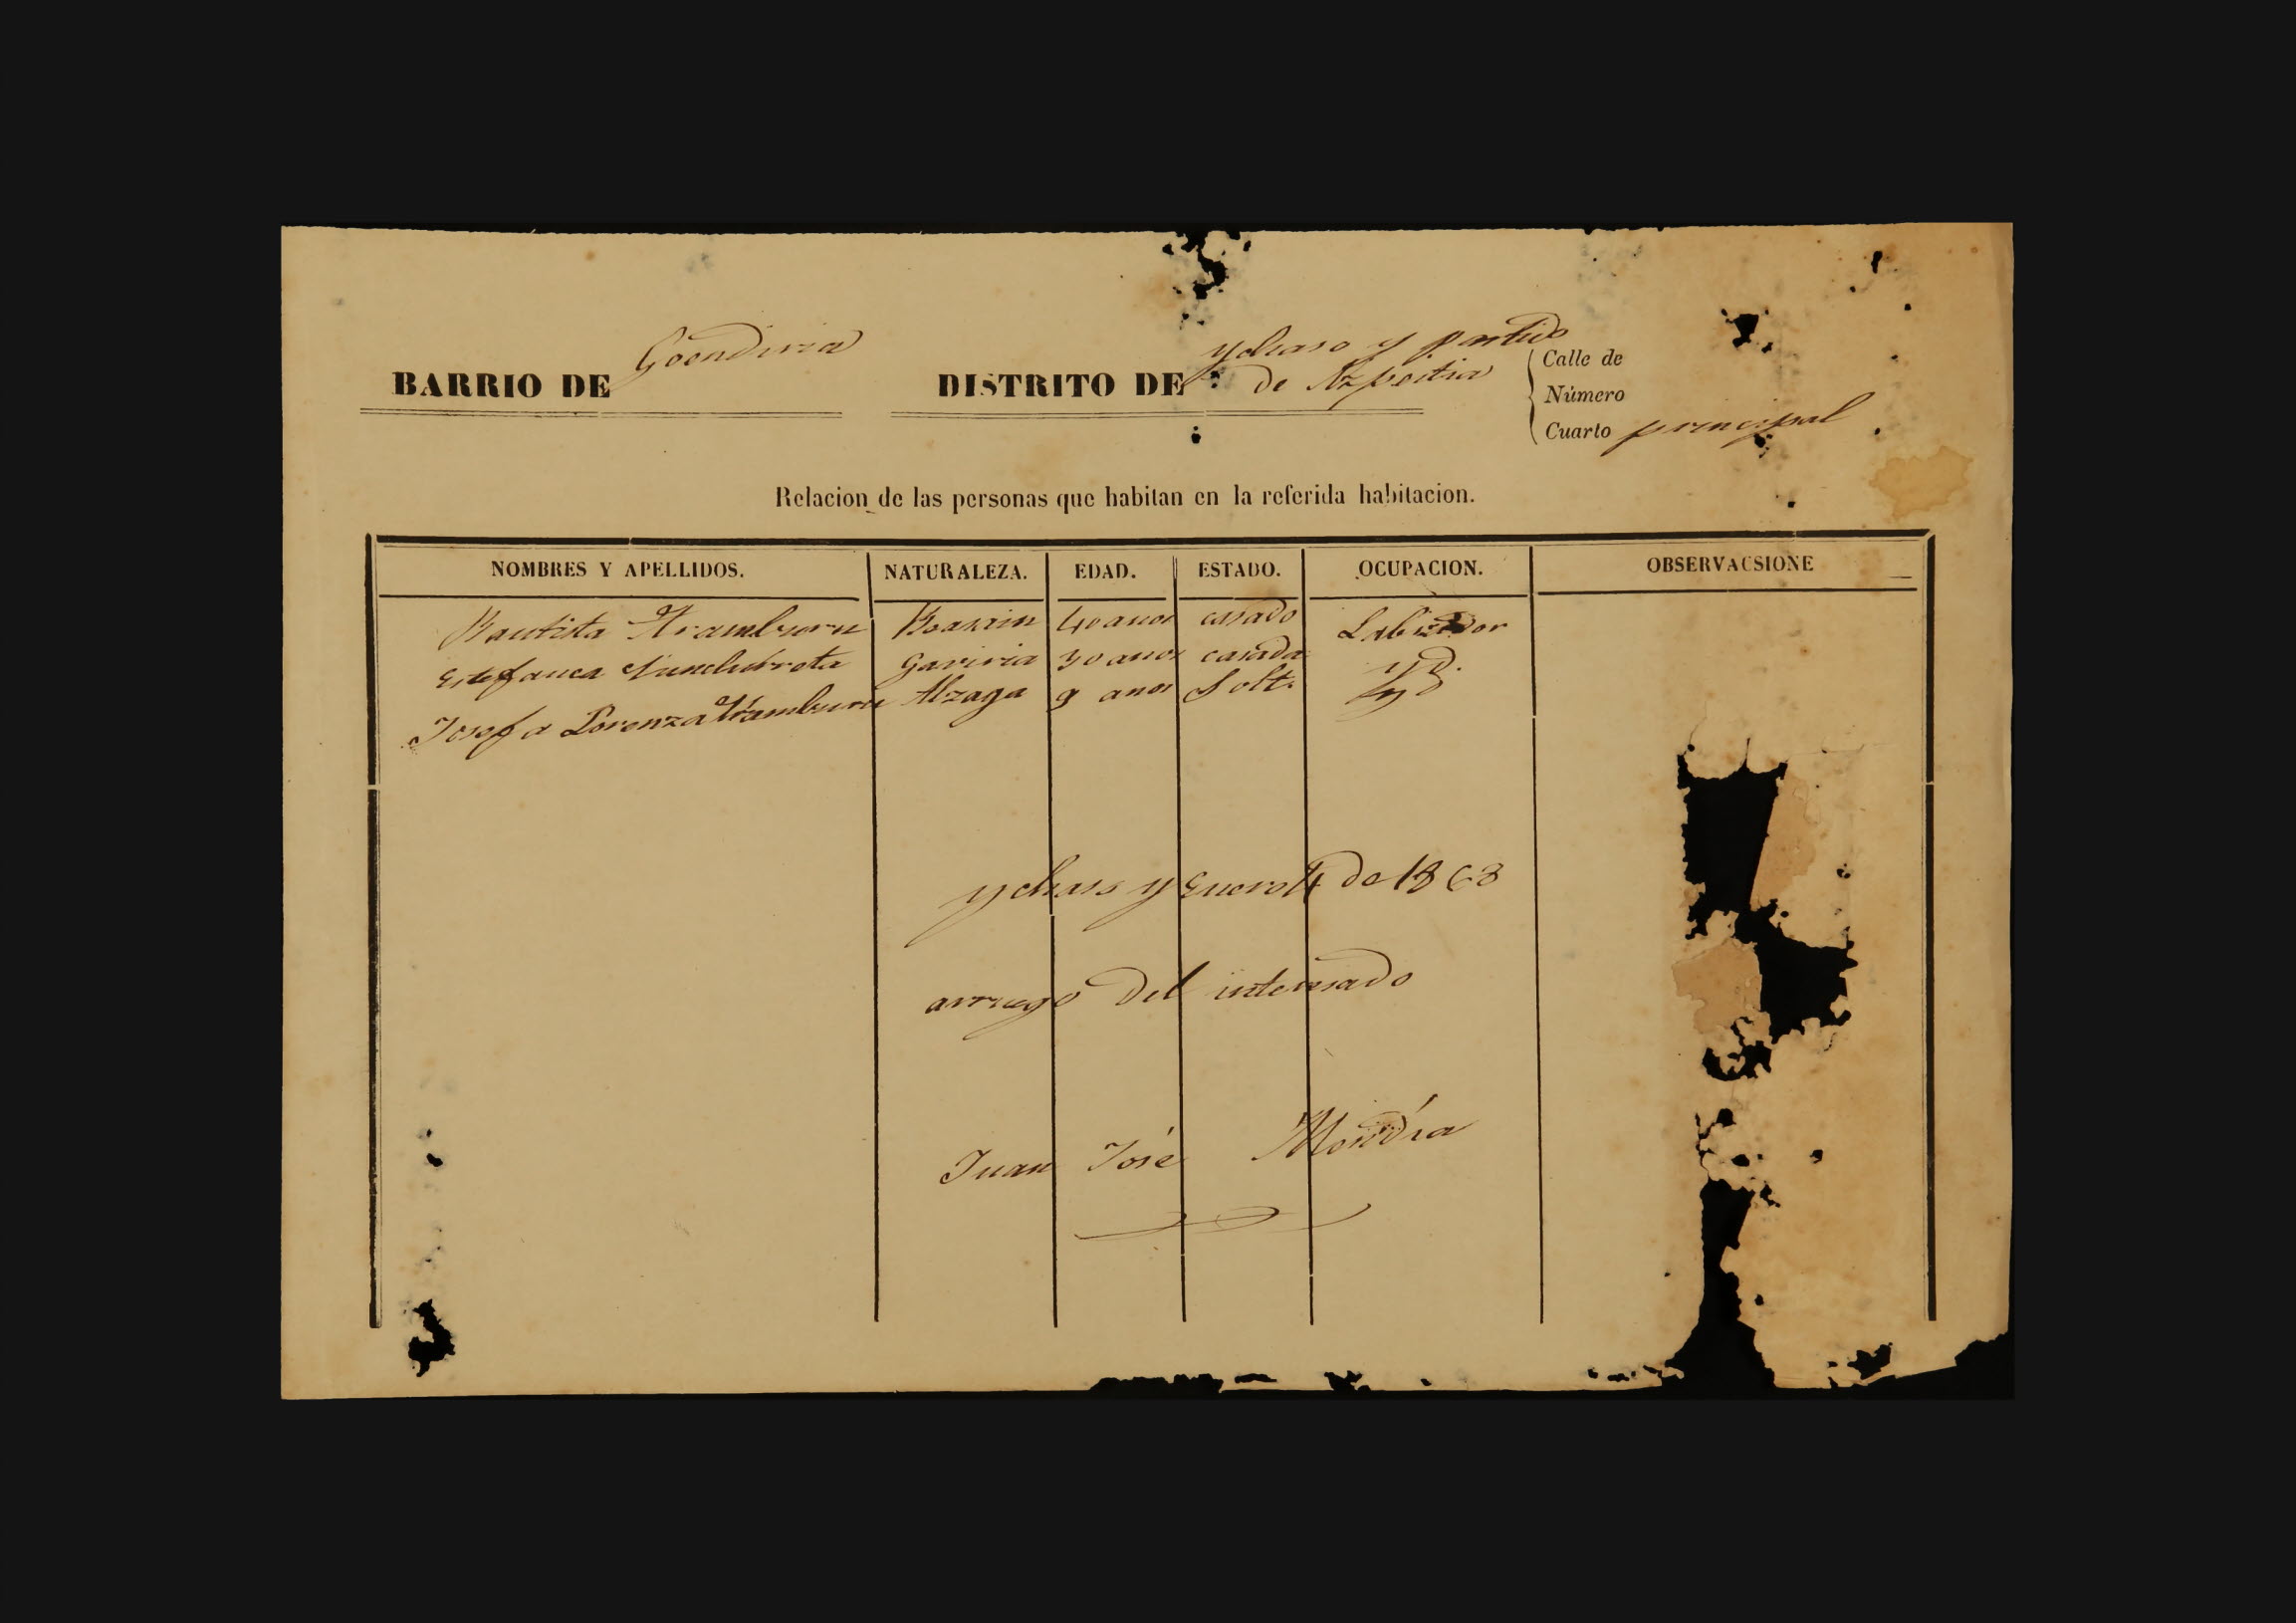 Goendiria
ychaso y partido
BARRIO DE DISTRITO DE de Azpeitia
Calle de
Número
Cuarto principal
Relacion de las personas que habitan en la referida habitacion.
NOMBRES Y APELLIDOS. NATURALEZA. EDAD. ESTADO. OCUPACION. OBSERVACSIONE
Bautista Aramburu Beasain 40 anos casado Labrador
Gaviria anos casada yd.
Josefa Lorenza Aramburu Alzaga 9 anos Solt. yd
ychaso y Enero 4 de 1868
arruego del interesado
Juan José